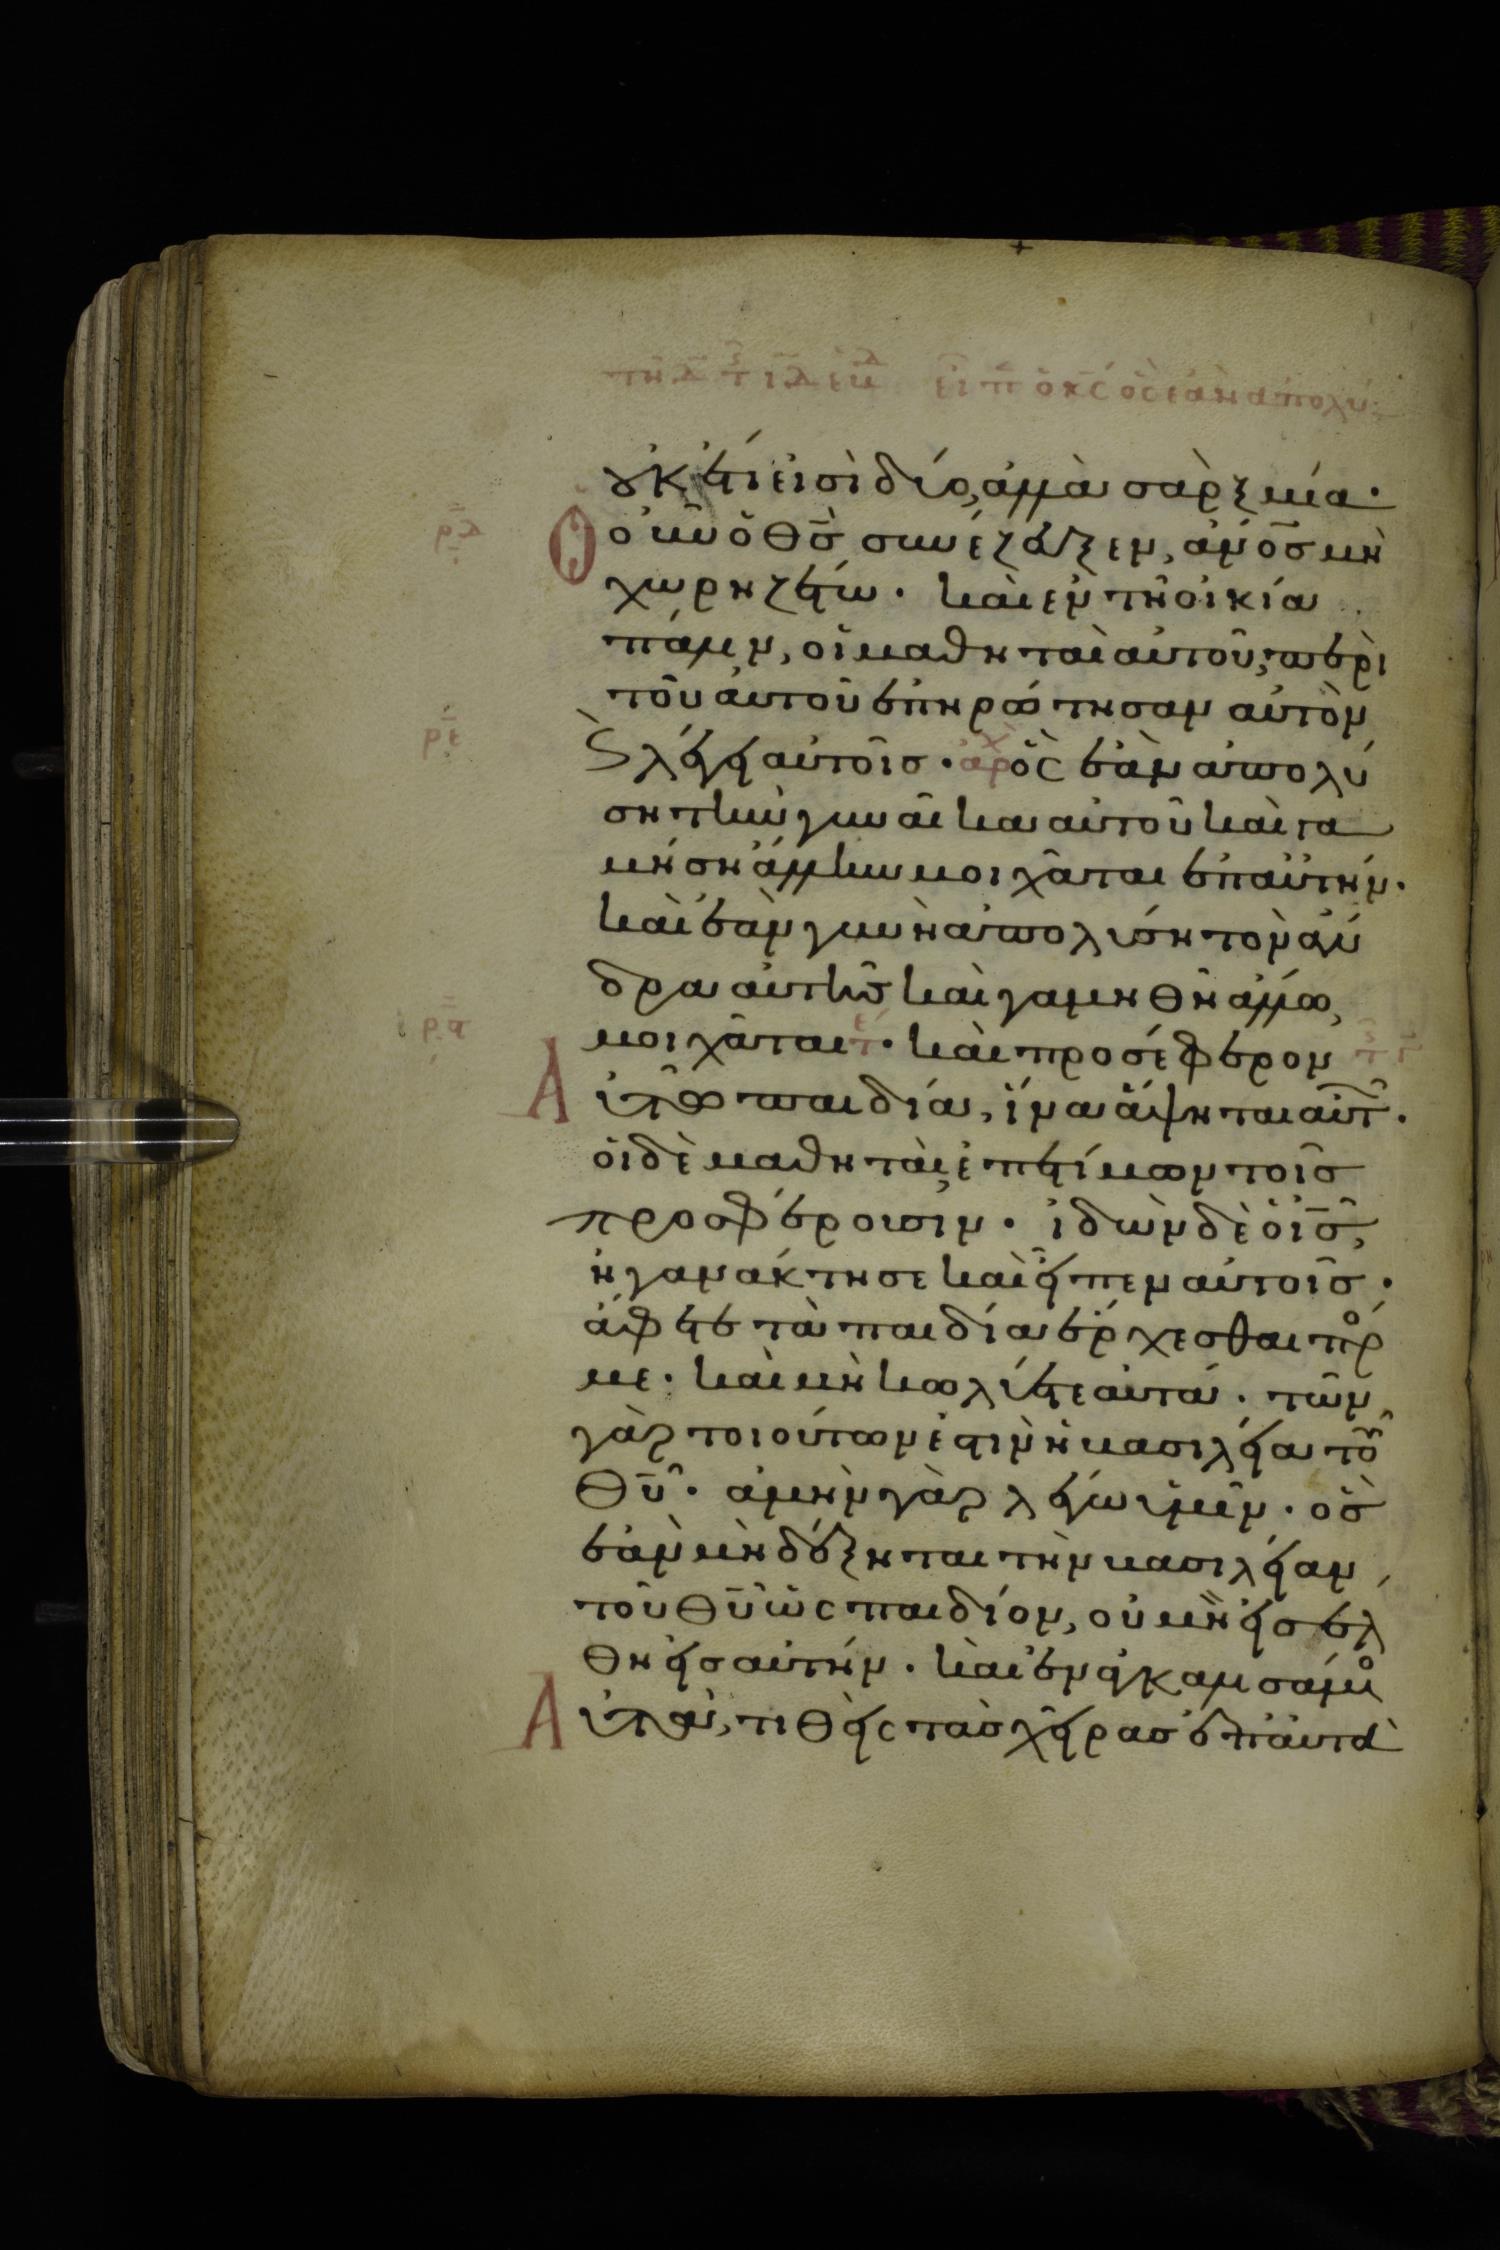 τῆ δ τ ιδ ἑβδ εἶπ ὁ κς ὃς ἐὰν ἀπολύ
οὐκέτι εἰσὶ δύο, ἀλλὰ σὰρξ μία·
Ὃ οὖν ὁ θς συνέζευξεν, ἄνος μὴ
χωρηζέτω· καὶ ἐν τῆ οἰκία
πάλιν, οἱ μαθηταὶ αὐτοῦ, περὶ
τοῦ αὐτοῦ ἐπηρώτησαν αὐτὸν
Ϛ λέγει αὐτοῖς· ἀρχ ὃς ἐὰν ἀπολύ
ση τὴν γυναῖκα αὐτοῦ καὶ γα
μήση ἄλλην μοιχᾶται ἐπ αὐτήν·
καὶ ἐὰν γυνὴ ἀπολύση τὸν ἄν
δρα αὐτῆς καὶ γαμηθῆ ἄλλω,
μοιχᾶται τέ· καὶ προσέφερον
Αὐτῶ παιδία, ἵνα ἅψηται αὐτ·
οἱ δὲ μαθηταὶ ἐπετίμων τοῖς
προσφέρουσιν· ἰδὼν δὲ ὁ ις,
ἠγανάκτησε καὶ εἶπεν αὐτοῖς·
ἄφετε τὰ παιδία ἔρχεσθαι πρ
με· καὶ μὴ κωλύετε αὐτά· τῶν
γὰρ τοιούτων ἐστὶν ἡ βασιλεία τοῦ
θυ· ἀμὴν γὰρ λέγω ὑμῖν· ὃς
ἐὰν μὴ δέξηται τὴν βασιλείαν
τοῦ θυ ὡς παιδίον, οὐ μὴ εἰσέλ
θη εἰς αὐτήν· καὶ ἐναγκαλισάμεν
Αὐτὰ, τιθεὶς τὰς χεῖρας ἐπ αὐτὰ
ρδ
ρε
ρϛ